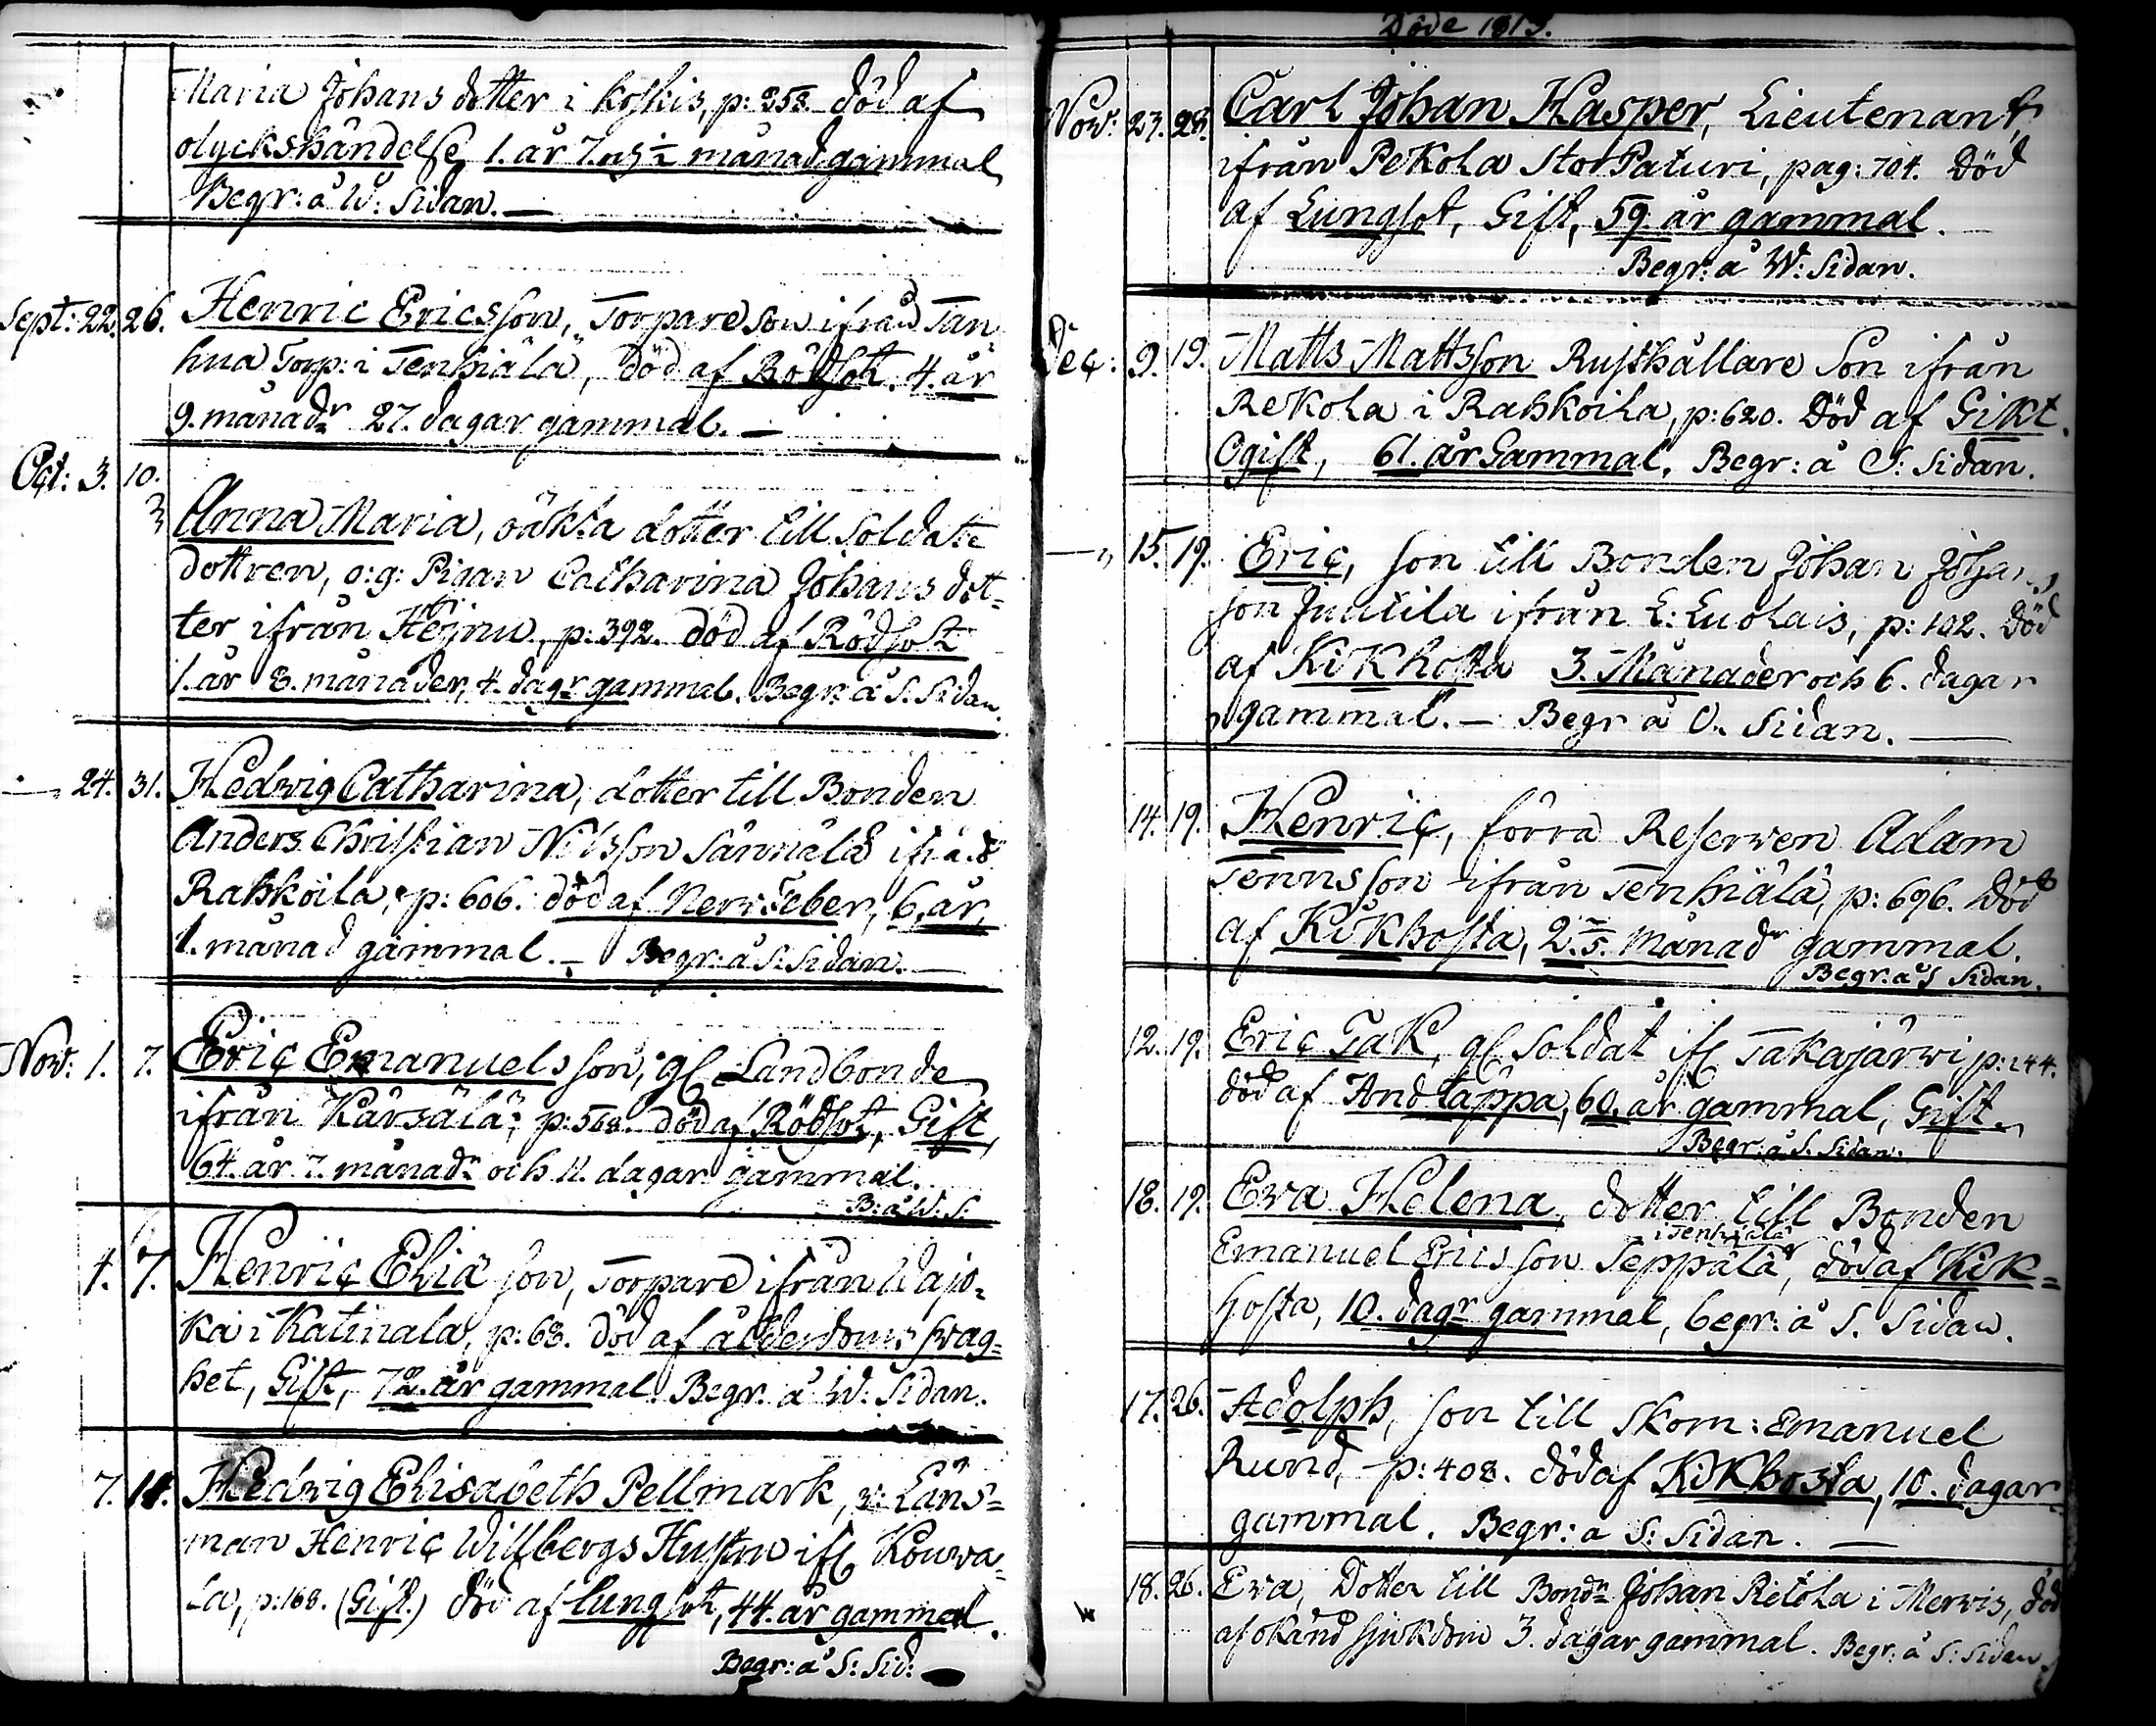 Maria Johans dotter i Koskis, p: 258. död af
olyckshändelse, 1. år 7. månad gammal
Begr: å W: Sidan. —
Sept: 22. 26. Henric Ericsson, Torpare Son ifrån Tan-
hua Torp: i Tenhiälä, död af Rödsot. 4. år
9. månadr 27. dagar gammal. —
Oct: 3. 10.
Anna Maria, oäkta dotter till Soldate
dottren, o: g: Pigan Catharina Johans dot-
ter ifrån Heinu, p: 392. död af Rödsot
1. år 8. månader, 4. dagr gammal. Begr: å S. Sidan.
— 24. 31. Hedwig Catharina, dotter till Bonden
Anders Christian Nilsson Sännälä ifrån
Rahkoila, p: 606. död af Nerv Feber, 6. år,
1. månad gammal. — Begr: å S: Sidan. —
Nov: 1. 7. Eric Emanuels son, gl Landbonde
ifrån Karsälä, p: 568. död af Rödsot, Gift,
64. år 7. månadr och 11. dagar gammal.
B: å W: S:
4. 7. Henric Eliæ son, Torpare ifrån Wajo-
ka i Katinala, p: 68. död af ålderdoms swag-
het, Gift, 72. år gammal. Begr. å W: Sidan.
7. 14. Hedwig Elisabeth Pellmark, v: Läns-
man Henric Willbergs Hustru ifr Kouwa-
la, p: 168. (Gift.) död af lungsot, 44. år gammal.
Begr: å S: Sid:
Döde 1813.
Nov: 23. 28. Carl Johan Hasper, Lieutenant
ifrån Pekola StorPaturi, pag: 704. Död
af Lungsot, Gift, 59. år gammal. —
Begr: å W: Sidan.
Dec: 9. 19. Matts Mattsson Rusthållare Son ifrån
Rekola i Rahkoila, p: 620. Död af Gikt.
Ogift, 61. år Gammal, Begr: å S: Sidan.
— 15. 19. Eric, son till Bonden Johan Johans
son Juutila ifrån L: Luolais, p: 102. Död
af Kikhosta 3. Månader och 6. dagar
gammal. — Begr å O. Sidan. —
14. 19. Henric, förra Reserven Adam
Tennsson ifrån Tenhiälä, p: 696. Död
af Kikhosta, 2. månadr gammal.
Begr: å S Sidan.
12. 19. Eric Tak, gl Soldat ifr Takajärwi, p: 244.
död af Andtäppa, 60. år gammal, Gift.
Begr: å S. Sidan.
18. 19. Ewa Helena, dotter till Bonden
i Tenhiälä
Emanuel Ericsson Seppälä, död af Kik-
hosta, 10. dagr gammal, begr: å S. Sidan.
17. 26. Adolph, son till Skom: Emanuel
Rund, p: 408. död af Kikhosta, 10. dagar
gammal. Begr: å S: Sidan. —
18. 26. Ewa, Dotter till Bondn Johan Retola i Merwis, död
af okänd sjukdom 3. dagar gammal. Begr: å S: Sidan